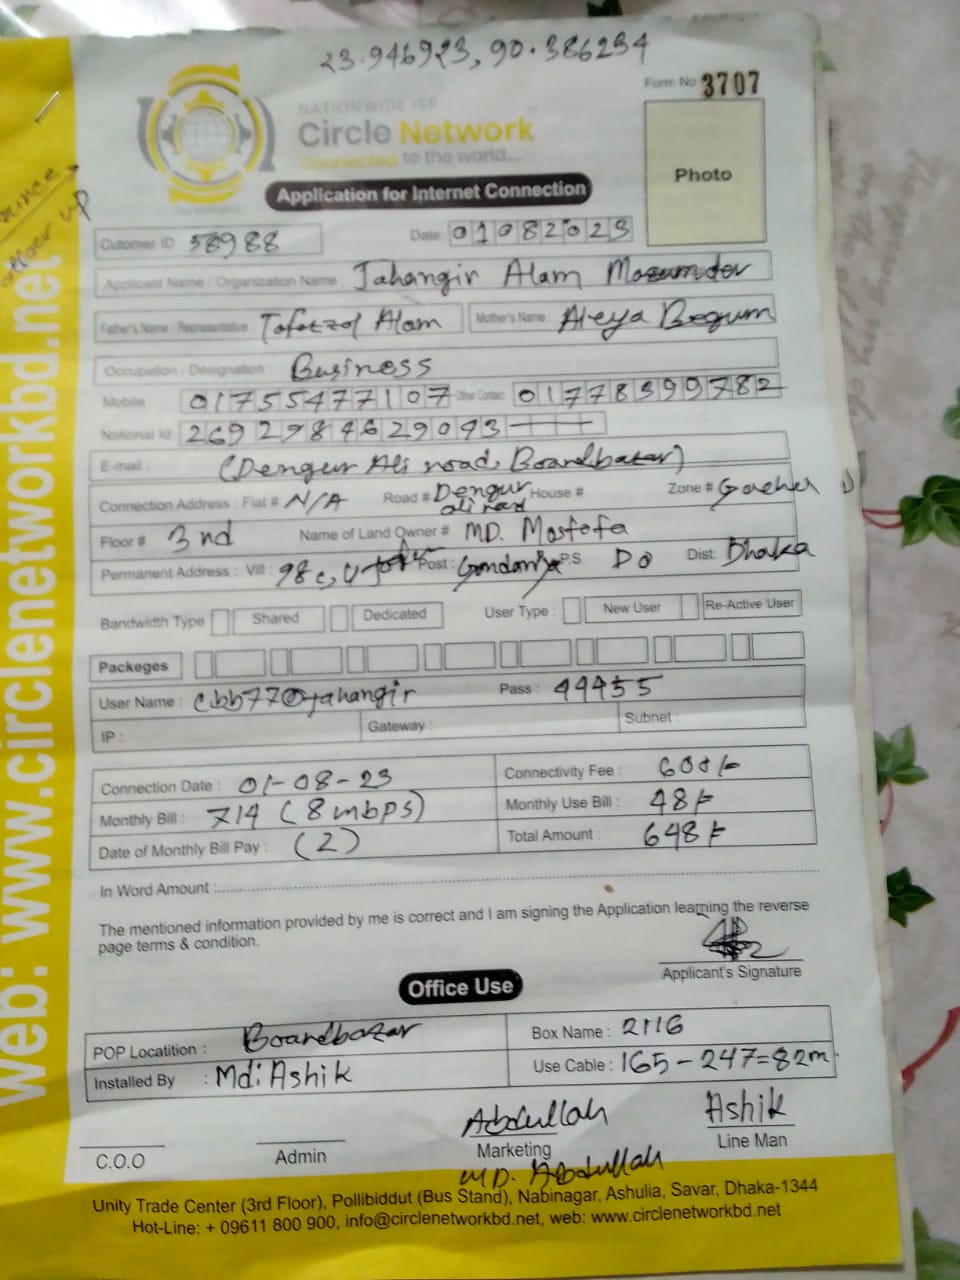 23.946923, 90.386254
Form No 3707
NATIONWIDE ISP
Circle Network
Connected to the world...
Photo
Application for Internet Connection
Cutomer ID 58988
Date: 01082023
Applicant Name / Organization Name : Jahangir Alam Mozumder
Father's Name / Representative : Tofazzol Alam Mother's Name : Aleya Begum
Occupation / Designation : Business
Mobile : 01755477107 Other Contact 01778399782
National Id: 2692984629093
E-mail : (Dengur Ali road, Boardbazar)
Connection Address : Flat # N/A Road # Dengur ali road House # Zone # Gacha
Floor # 3nd Name of Land Owner # MD. Mostofa
Permanent Address : Vill : 98c, Post : P.S. DO Dist: Dhaka
Bandwidth Type Shared Dedicated User Type : New User Re-Active User
Packeges
User Name : cbb77@jahangir Pass : 44455
IP : Gateway : Subnet :
Connection Date : 01-08-23 Connectivity Fee : 600/-
Monthly Bill : 714 (8 mbps) Monthly Use Bill : 48/-
Date of Monthly Bill Pay : (2) Total Amount : 648/-
In Word Amount :
The mentioned information provided by me is correct and I am signing the Application learning the reverse
page terms & condition.
Applicant's Signature
Office Use
POP Locatition : Boardbazar Box Name : 2116
Installed By : Md: Ashik Use Cable : 165-247=82m
Abdullah Ashik
C.O.O Admin Marketing Line Man
MD. Abdullah
Unity Trade Center (3rd Floor), Pollibiddut (Bus Stand), Nabinagar, Ashulia, Savar, Dhaka-1344
Hot-Line: + 09611 800 900, info@circlenetworkbd.net, web: www.circlenetworkbd.net
web: www.circlenetworkbd.net